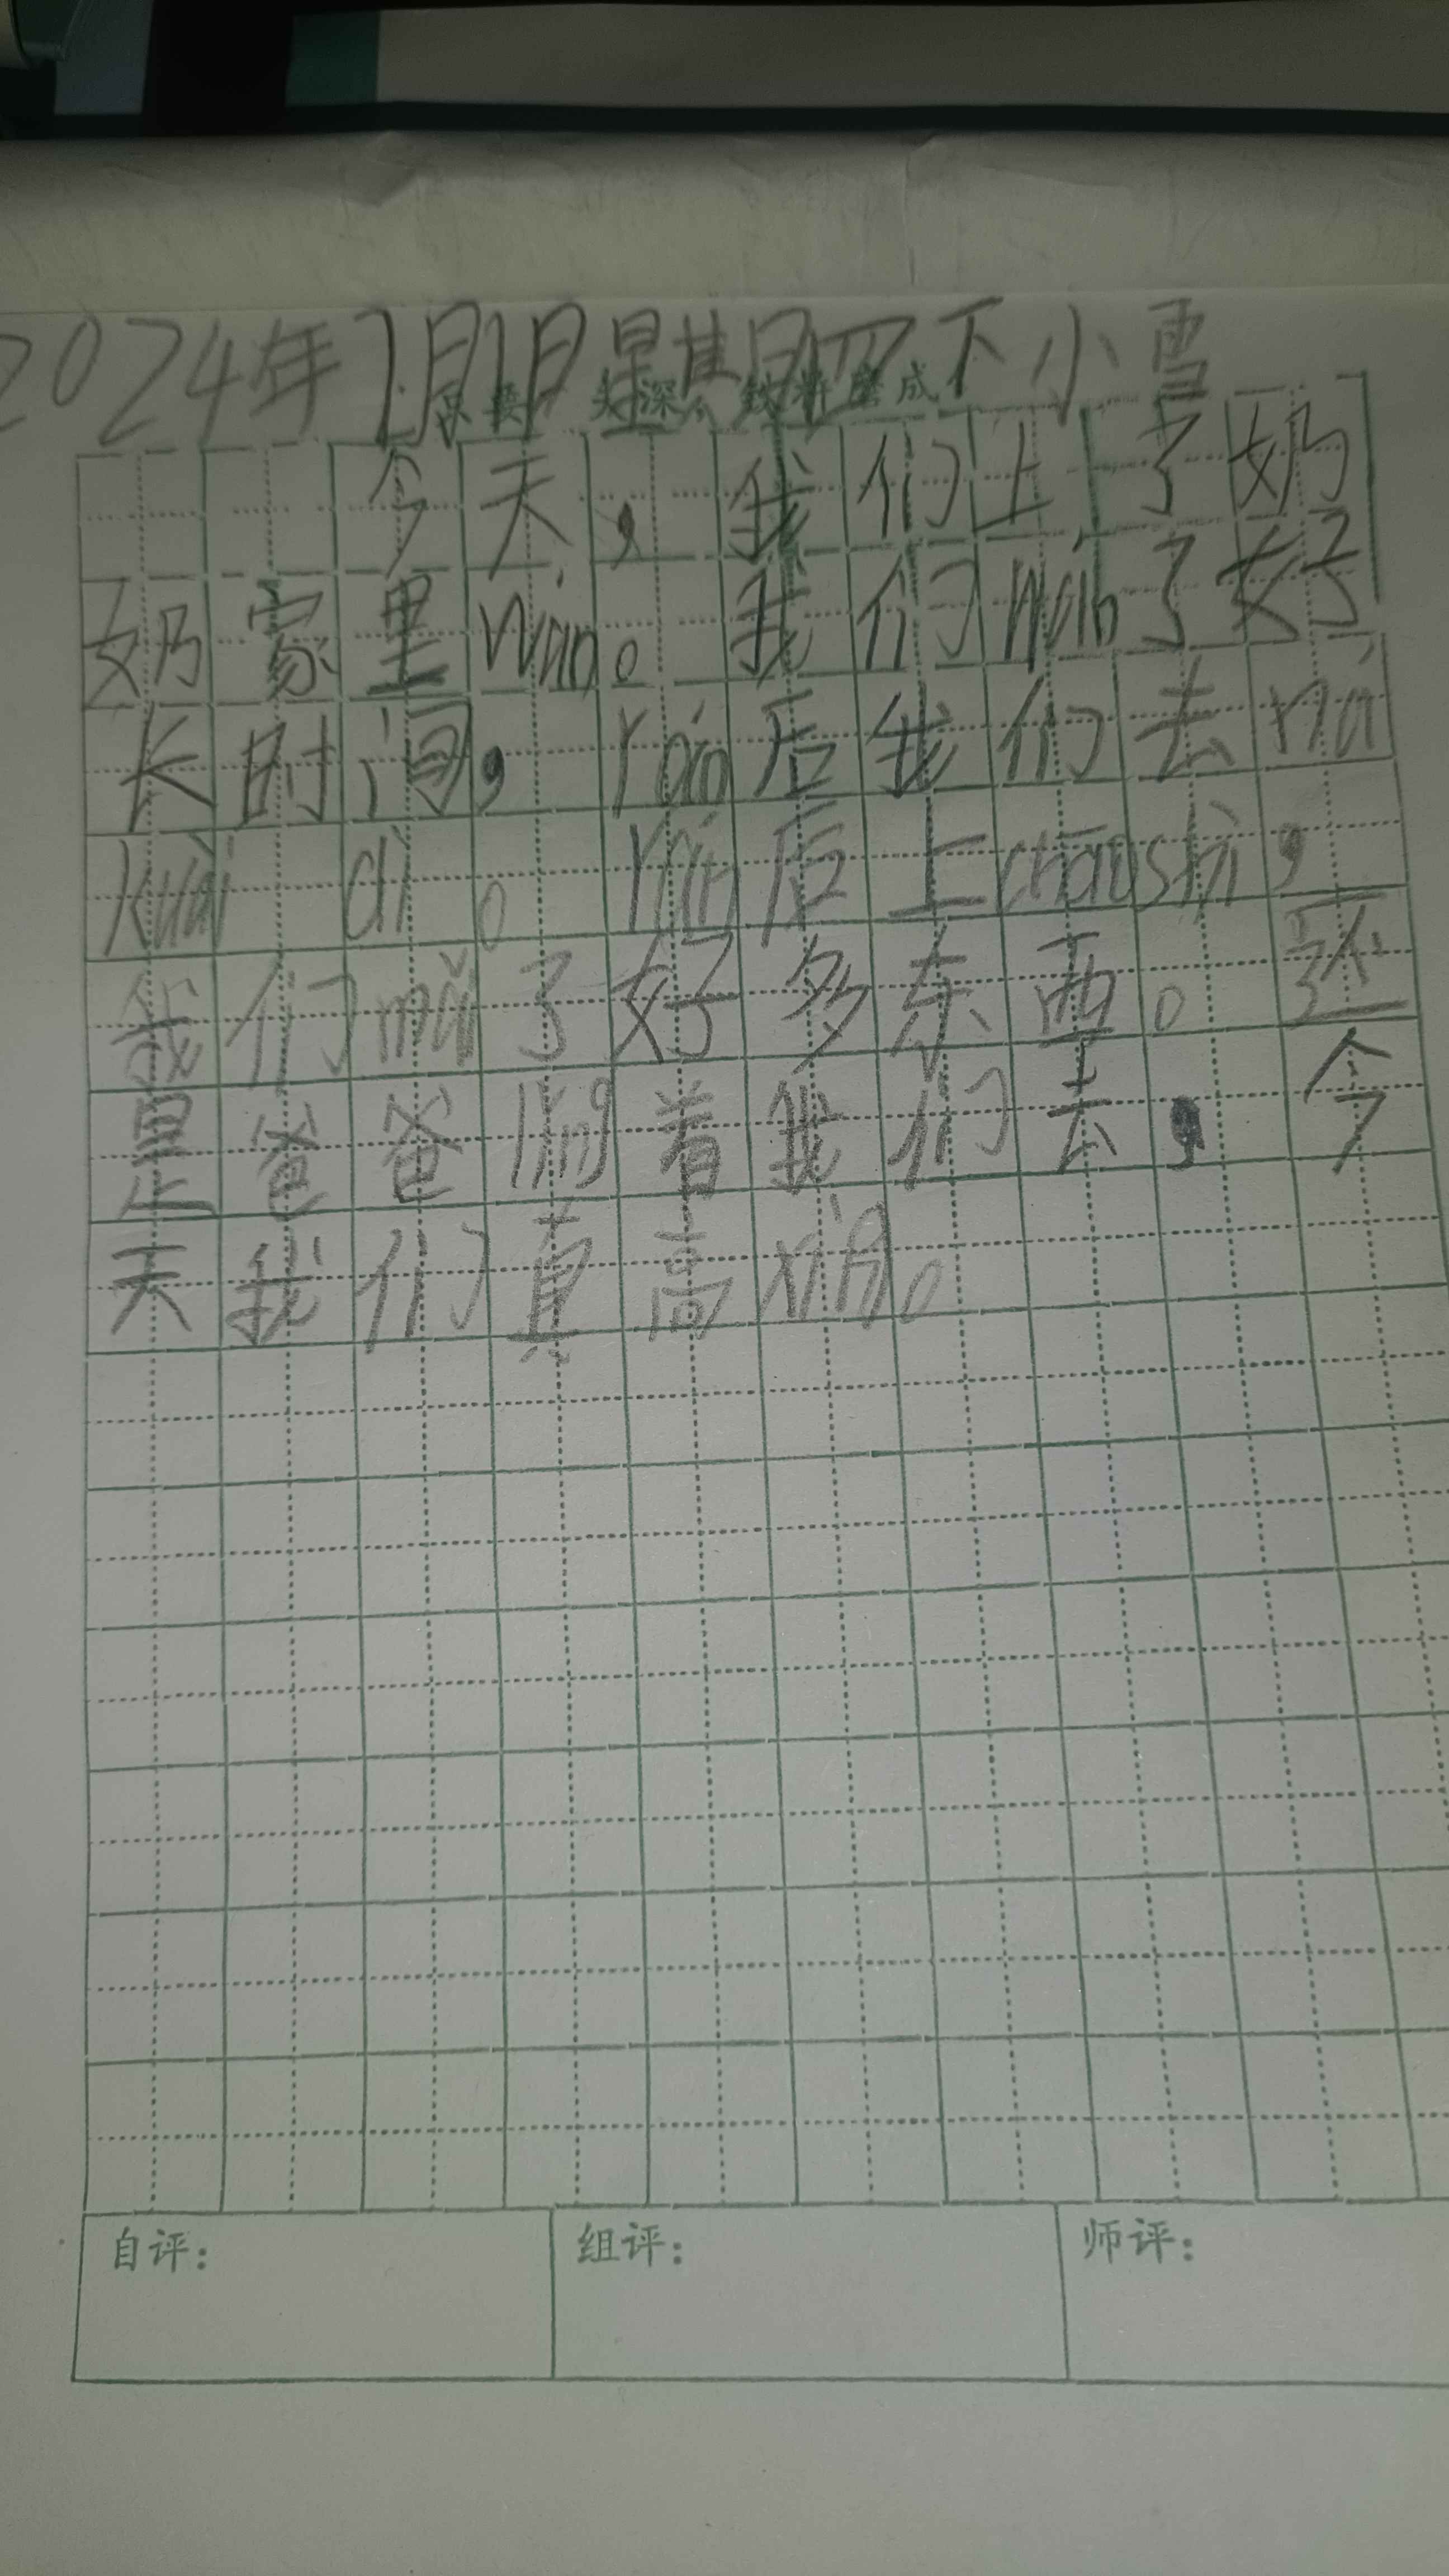 2024年2月1日星其日四下小雪
今天，我们上了奶
奶家里wán。我们wán了好
长时间，rán后我们去ná
kuài dì。rán后上chāoshì，
我们mǎi了好多东西。还
是爸爸lǐng着我们去，今
天我们真高xìng。
自评： 组评： 师评：